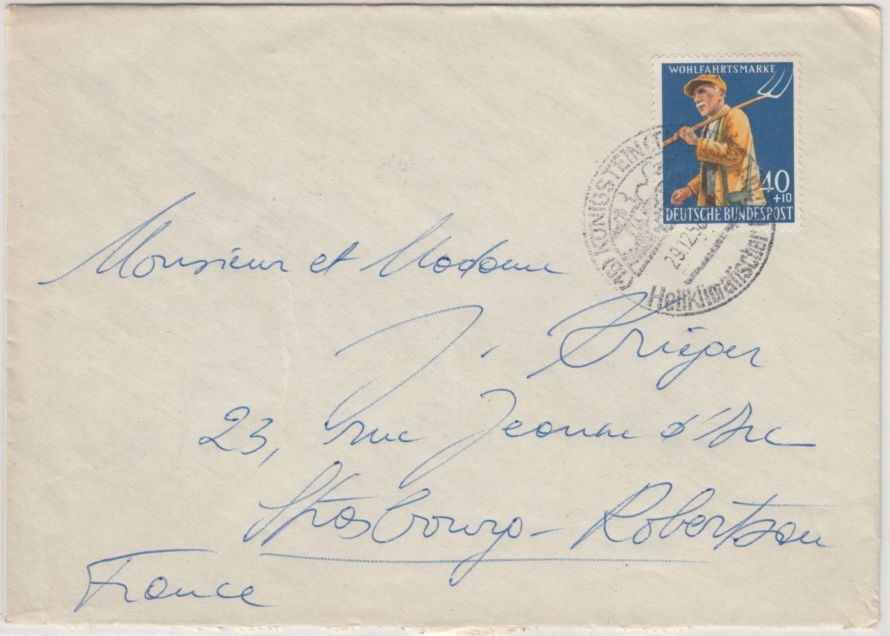 WOHLFAHRTSMARKE
40
+10
DEUTSCHE BUNDESPOST
(16) KÖNIGSTEIN (T
29.12.5
Heilklimatischer
Monsieur et Madame
J. Krieger
23, rue Jeanne d'Arc
Strasbourg-Robertsau
France